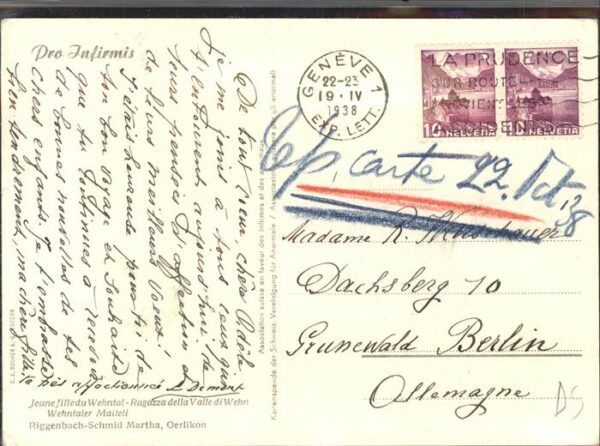 Pro Infirmis
De tout cœur, chère Adèle
je me joins à tous ceux qui
t'entourent aujourd'hui de
leurs pensées d'affection et
de leurs meilleurs vœux.
J'étais heureuse pour toi de
ton bon voyage et souhaite
que tu continues à recevoir
de bonnes nouvelles de tes
chers enfants. Je t'embrasse
bien tendrement, ma chère fille
ta très affectionnée L. Demont
Jeune fille du Wehntal - Ragazza della Valle di Wehn
Wehntaler Maiteli
Riggenbach-Schmid Martha, Oerlikon
Association suisse en faveur des infirmes et des anormaux
Kartenspende der Schweiz. Vereinigung für Anormale
GENÈVE 1
22-23
19·IV
1938
EXP. LETT.
LA PRUDENCE
SUR ROUTE
10 HELVETIA
10 HELVETIA
rép. carte 22. Oct. 38
Madame R.
Dachsberg 10
Grunewald Berlin
Allemagne